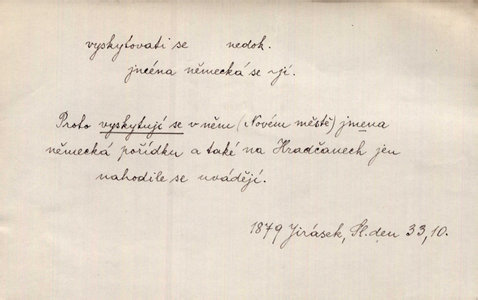 vyskytovati se nedok.
jména německá se ~jí.
Proto vyskytují se v něm (Novém městě) jmena
německá pořídku a také na Hradčanech jen
nahodile se uvádějí.
1879 Jirásek, Sl. den 33,10.